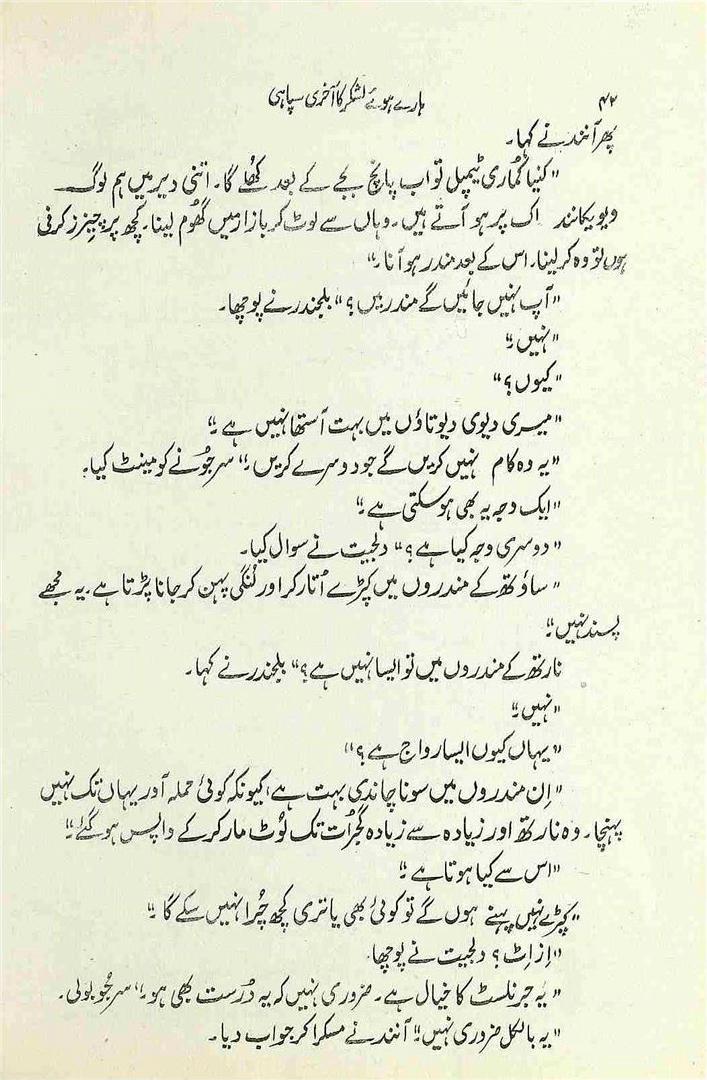 ۴۲ ہارے ہوئے لشکر کا آخری سپاہی
پھر آنند نے کہا۔
"کنیا کُماری ٹیمپل تو اب پانچ بجے کے بعد کھُلے گا۔ اتنی دیر میں ہم لوگ
ویویکانند اک پر ہو آتے ہیں۔ وہاں سے لوٹ کر بازار میں گھُوم لینا۔ کچھ پرچیزز کرنی
ہوں تو وہ کر لینا۔ اس کے بعد مندر ہو آنا۔"
"آپ نہیں جائیں گے مندر میں؟" بلجندر نے پوچھا۔
"نہیں۔"
"کیوں؟"
"میری دیوی دیوتاؤں میں بہت آستھا نہیں ہے۔"
"یہ وہ کام نہیں کریں گے جو دوسرے کریں۔" سرجُو نے کومینٹ کیا۔
"ایک وجہ یہ بھی ہو سکتی ہے۔"
"دوسری وجہ کیا ہے؟" دلجیت نے سوال کیا۔
"ساؤتھ کے مندروں میں کپڑے اُتار کر اور لُنگی پہن کر جانا پڑتا ہے۔ یہ مجھے
پسند نہیں۔"
نارتھ کے مندروں میں تو ایسا نہیں ہے؟" بلجندر نے کہا۔
"نہیں۔"
"یہاں کیوں ایسا رواج ہے؟"
"اِن مندروں میں سونا چاندی بہت ہے، کیونکہ کوئی حملہ آور یہاں تک نہیں
پہنچا۔ وہ نارتھ اور زیادہ سے زیادہ گجرُات تک لُوٹ مار کر کے واپس ہو گئے۔"
"اس سے کیا ہوتا ہے۔"
"کپڑے نہیں پہنے ہوں گے تو کوئی بھی یاتری کچھ چُرا نہیں سکے گا۔"
"اِز اِٹ؟ دلجیت نے پوچھا۔
"یہ جرنلسٹ کا خیال ہے۔ ضروری نہیں کہ یہ دُرست بھی ہو۔" سرجُو بولی۔
"یہ بالکل ضروری نہیں۔" آنند نے مسکرا کر جواب دیا۔